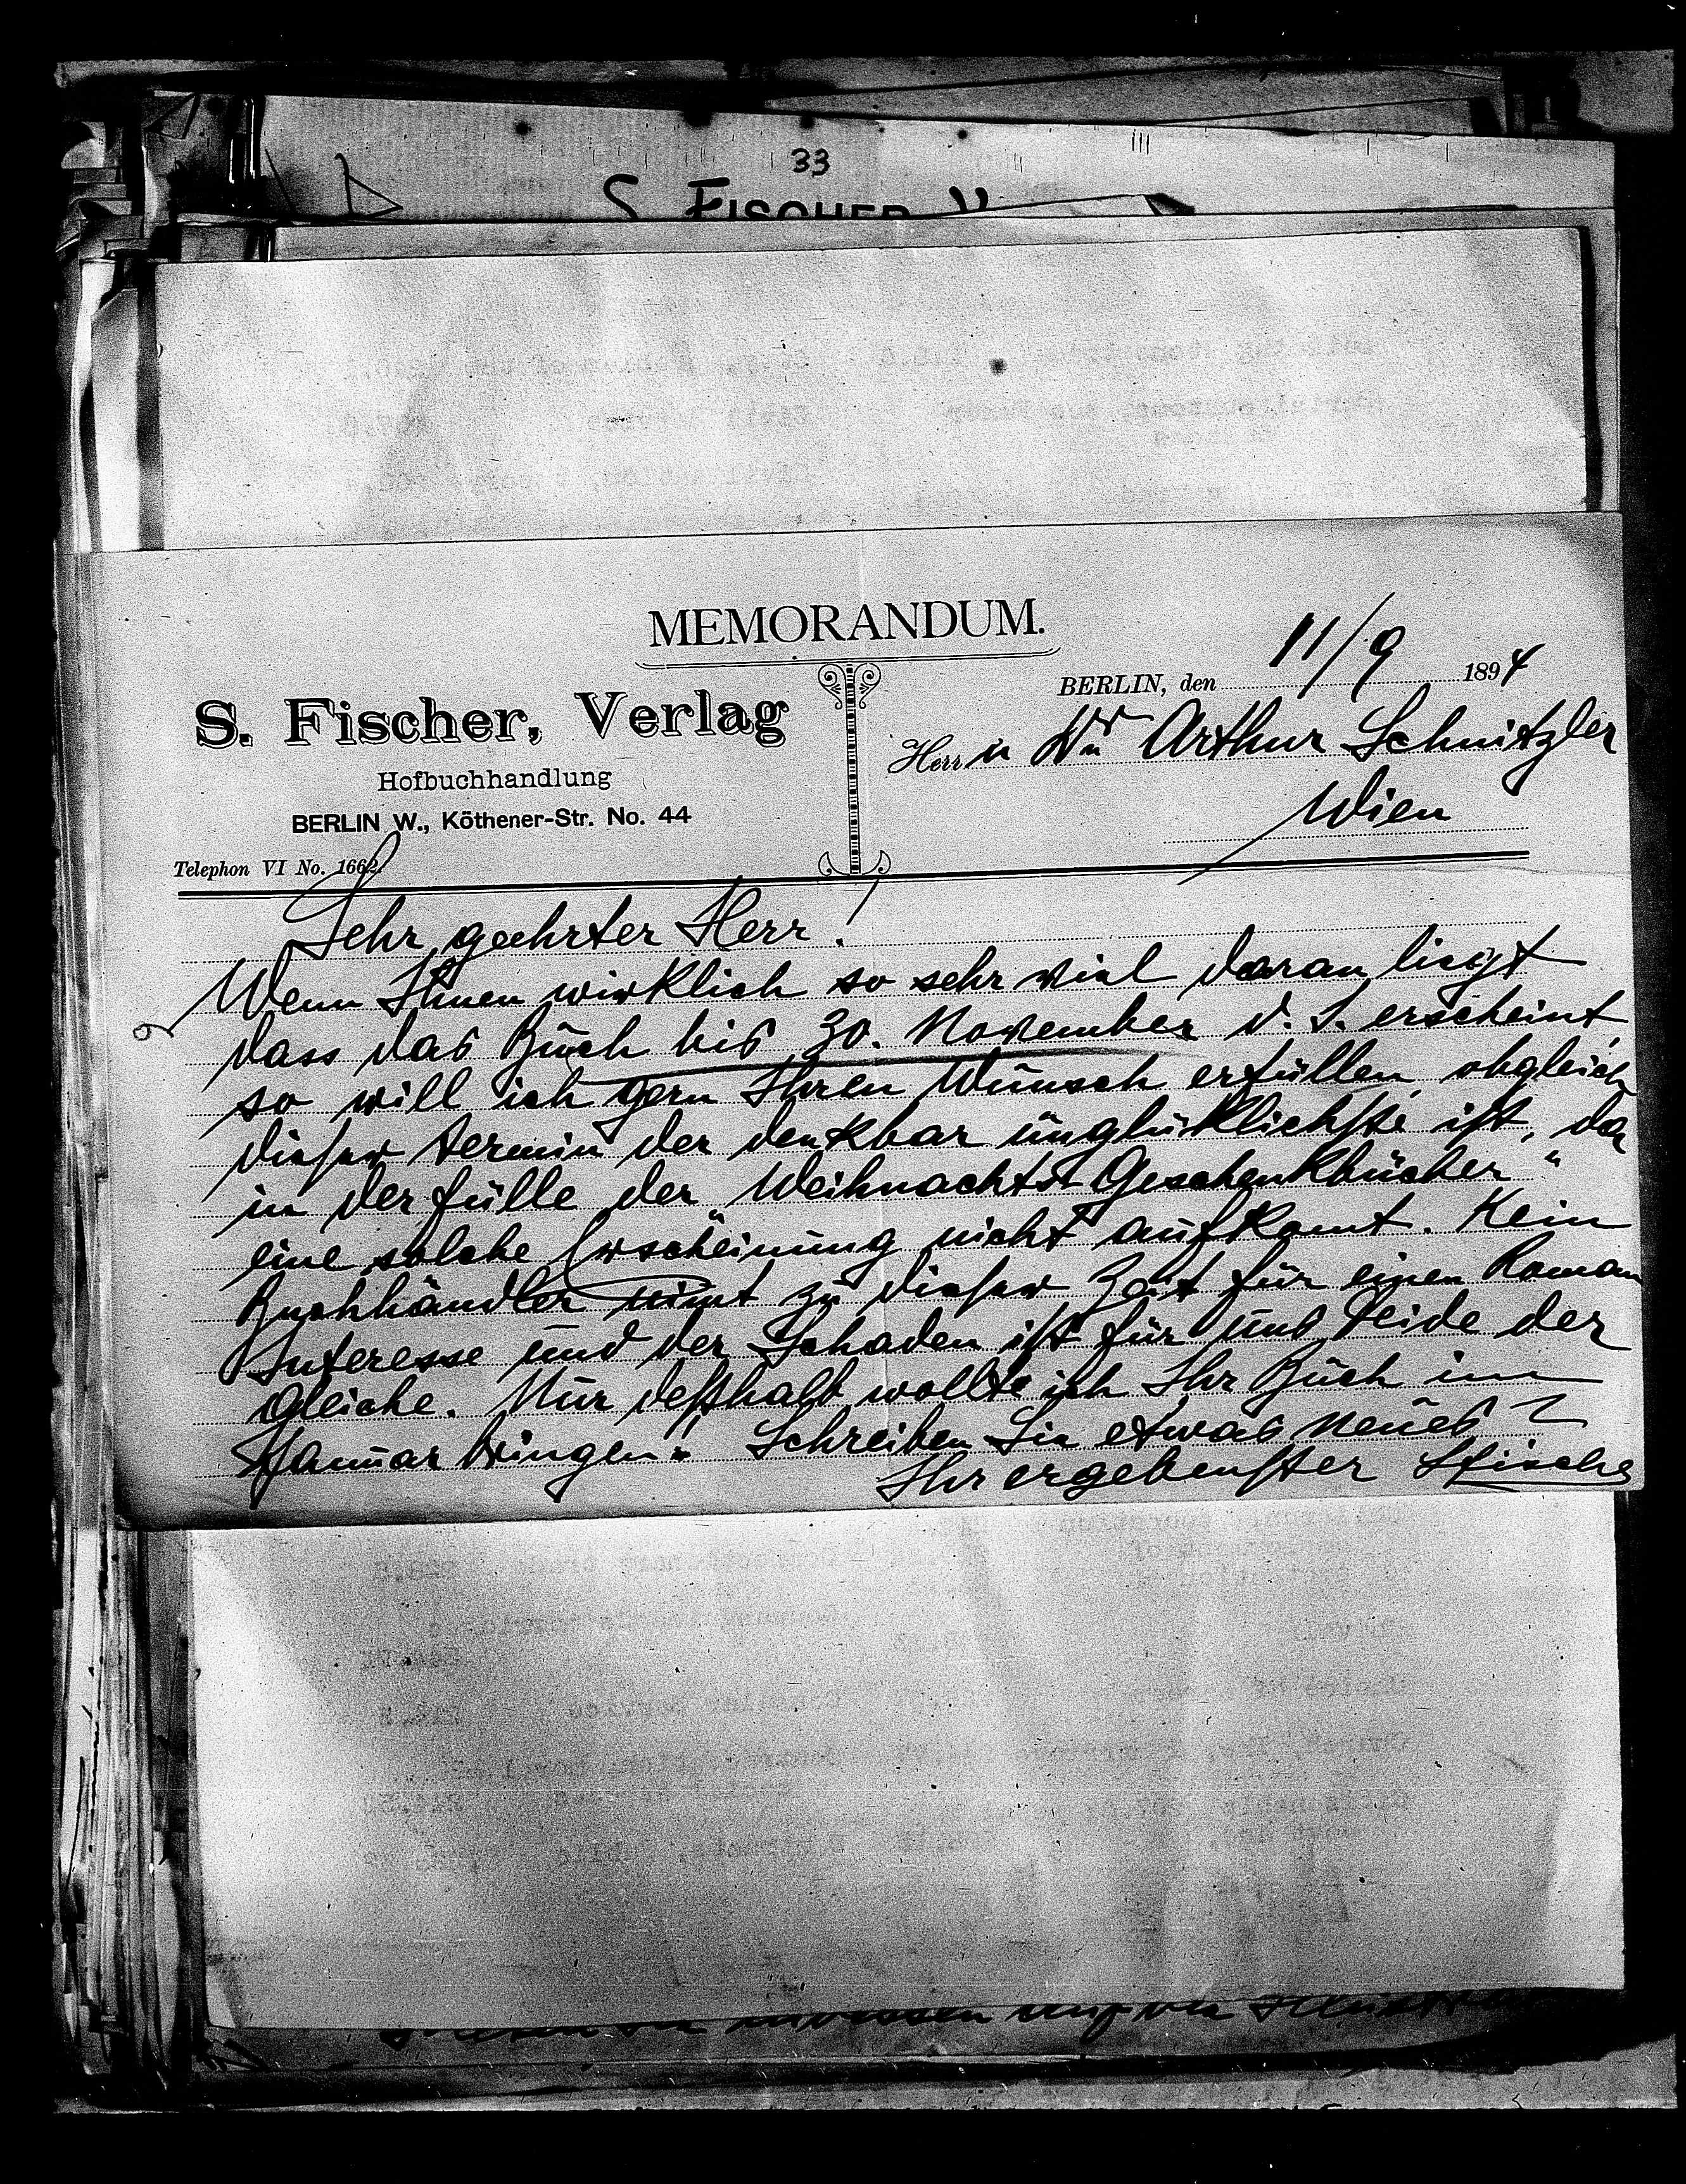 33
S. FISCHER, V
MEMORANDUM.
BERLIN, den 11/9 1894
S. Fischer, Verlag
Hofbuchhandlung
BERLIN W., Köthener-Str. No. 44
Telephon VI No. 1662.
Herrn Dr Arthur Schnitzler
Wien
Sehr geehrter Herr!
Wenn Ihnen wirklich so sehr viel daran liegt
dass das Buch bis 30. November d. J. erscheint,
so will ich gern Ihren Wunsch erfüllen, obgleich
dieser Termin der denkbar unglücklichste ist, da
in der Fülle der "Weihnachts Geschenkbücher"
eine solche Erscheinung nicht aufkomt. Kein
Buchhändler nimt zu dieser Zeit für einen Roman
Interesse und der Schaden ist für uns beide der
Gleiche. Nur deßhalb wollte ich Ihr Buch im
Januar bringen. Schreiben Sie etwas neues?
Ihr ergebenster SFischer